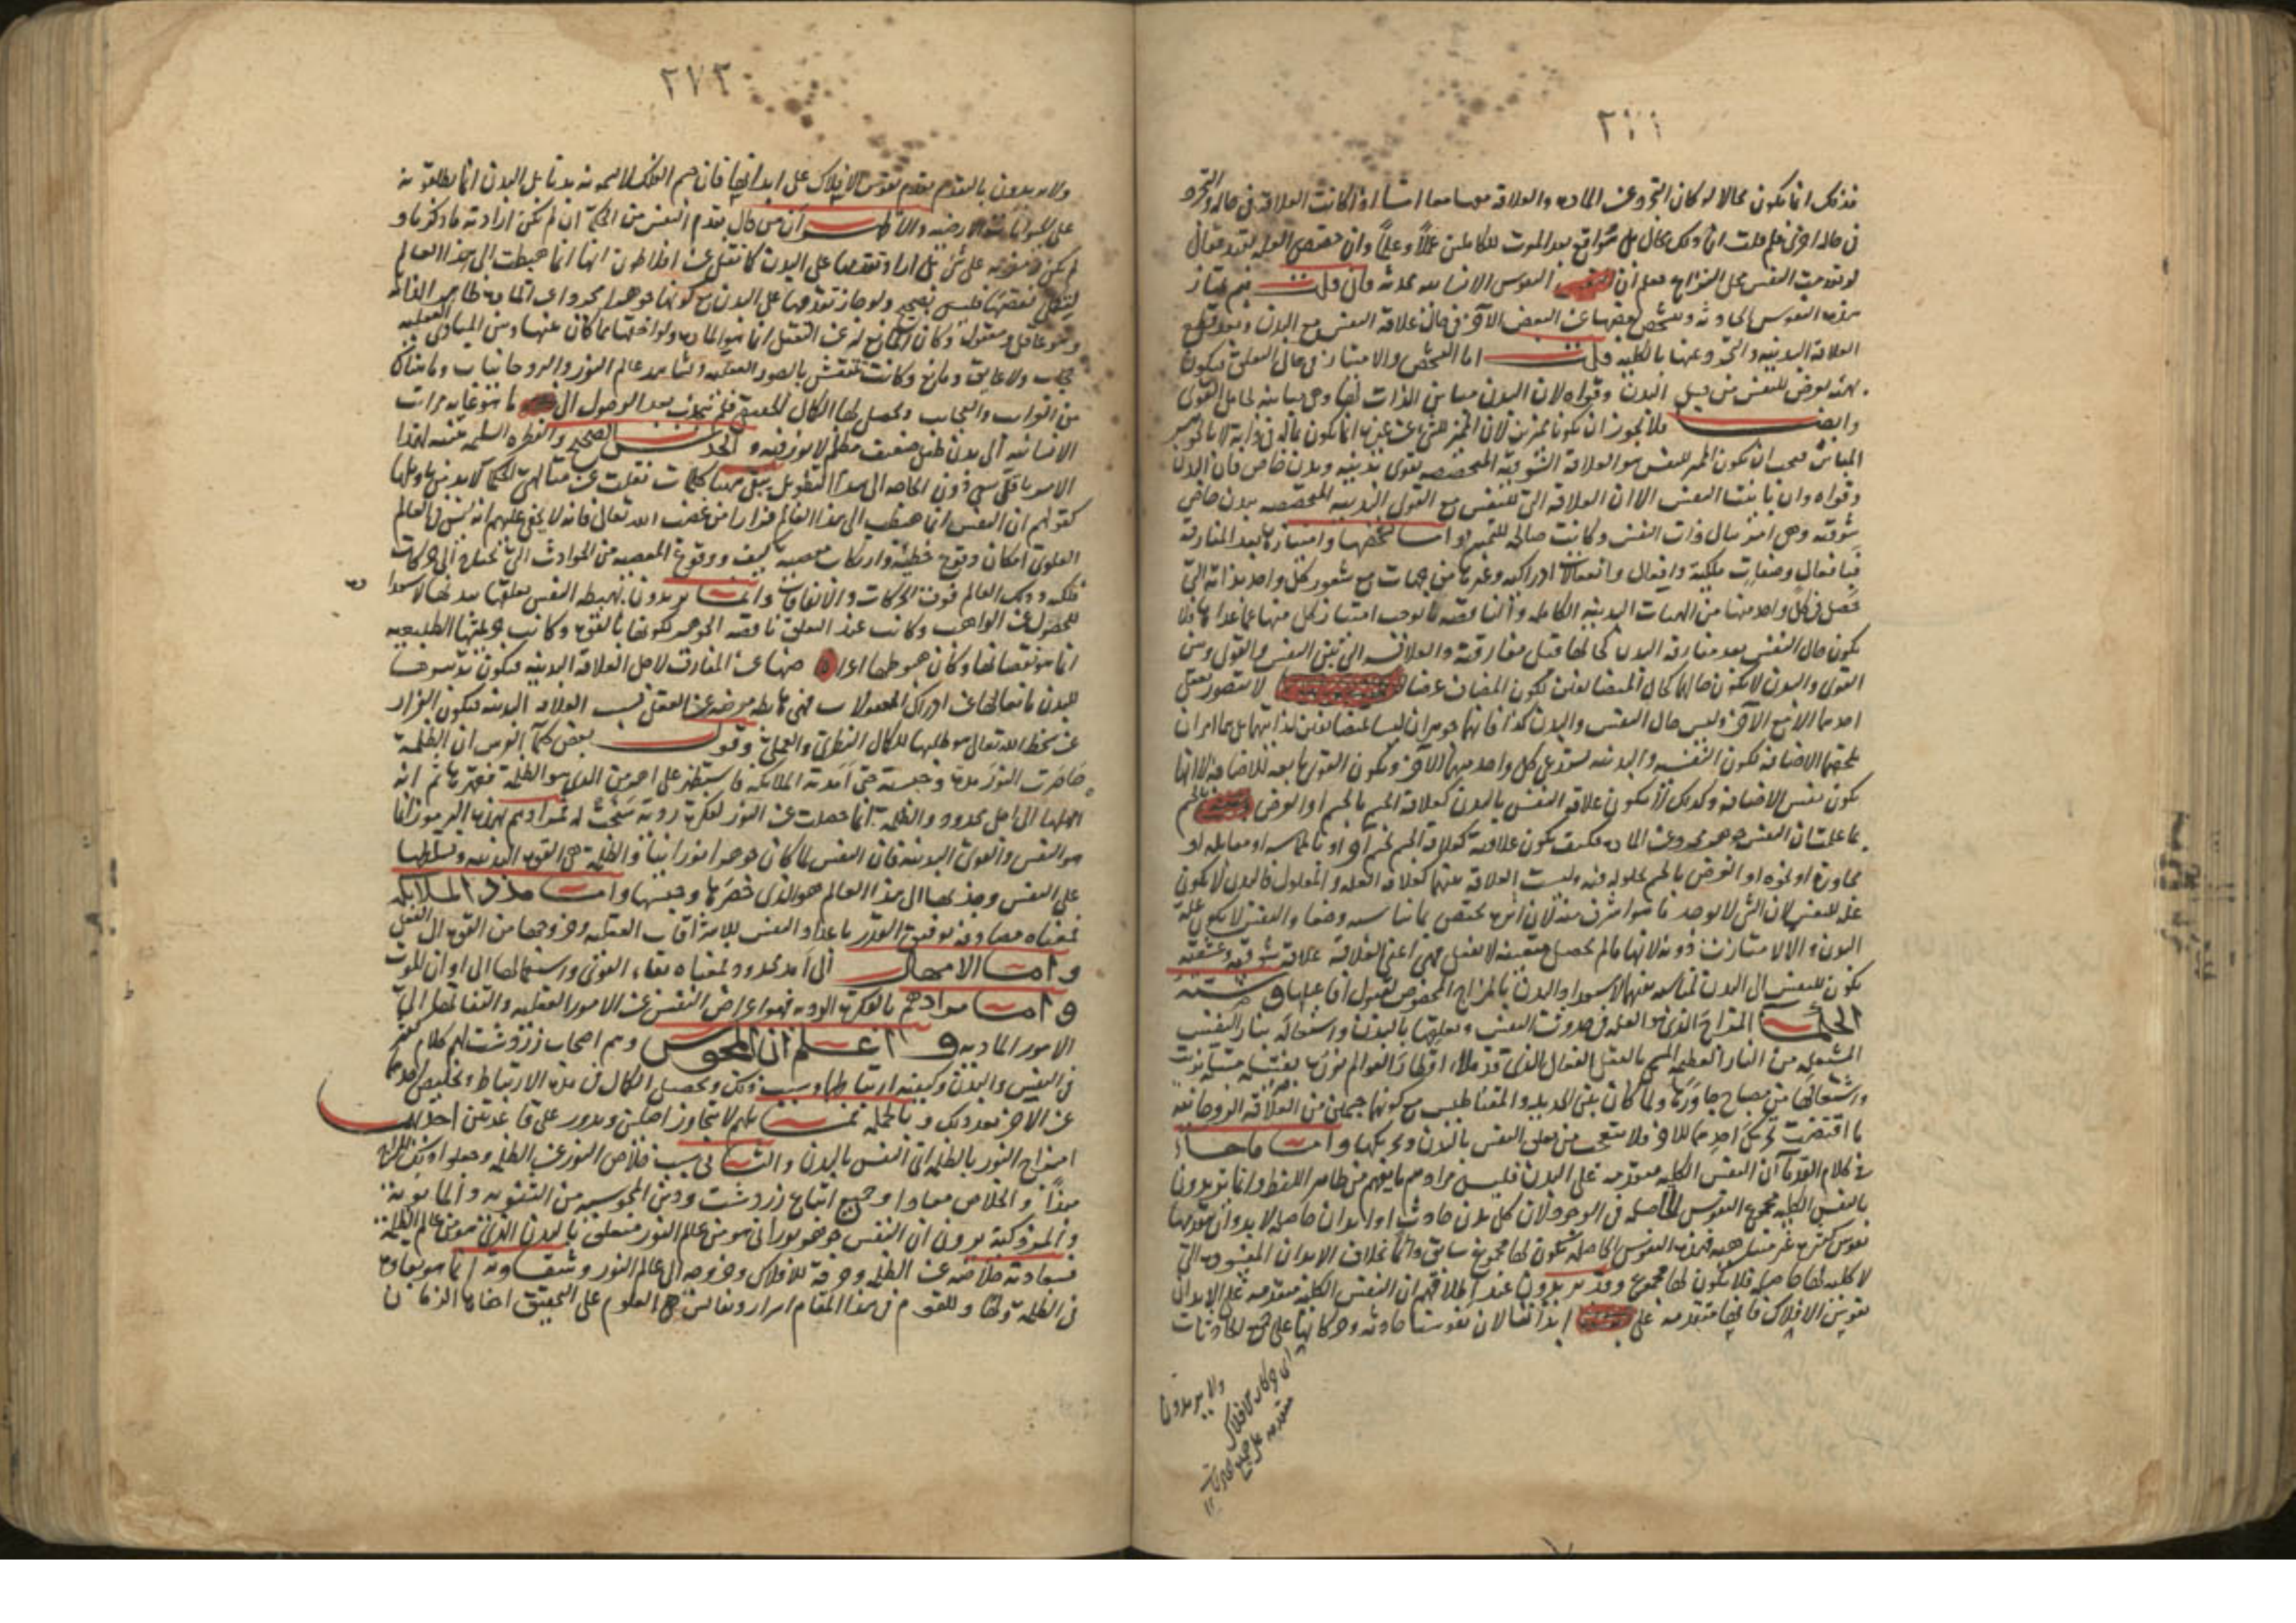 ٢٧١
فذلك انما يكون محالا لو كان التجرد عن المادة والعلاقة معها معا اما اذا كانت العلاقة فى حالة والتجرد
فى حالة اخرى فلم قلت ان ذلك محال بل هو واقع بعد الموت للكاملين علما وعملا وان
لو تقدمت النفس على المزاج فعلم ان النفوس الانسانية محدثة فان قلت فبم تمتاز
هذه النفوس الحادثة وتشخص بعضها عن البعض الآخر فى حال علاقة النفس مع البدن وبعد قطع
العلاقة البدنية والتجرد عنها بالكلية قلت اما التشخص والامتياز فى حال التعلق فيكون
بهيئة تعرض للنفس من قبل البدن وقواه لان البدن مباين الذات لها وهى مباينة لحامل القوى
وايضا فلا يجوز ان يكونا مميزين لان المميز للشئ عن غيره انما يكون بالذى فى ذاته لا بالجوهر
المباين فيجب ان يكون المميز للنفس هو العلاقة الشوقية المخصصة بقوى بدنية وبدن خاص فان البدن
وقواه وان باينت النفس الا ان العلاقة التى للنفس مع القوى البدنية المخصصة ببدن خاص
شوقية وهى امر ينال ذات النفس وكانت صالحة للتمييز واما تشخصها وامتيازها بعد المفارقة
فبافعال وصفات ملكية وافعال وانفعالات ادراكية وغيرها من جهات مع شعور كل واحد بذاته التى
حصل فى كل واحد منها من الهيئات البدنية الكاملة والناقصة ما يوجب امتياز كل منها عما عداها فلا
يكون حال النفس بعد مفارقة البدن كحالها قبل مفارقته والعلاقة التى بين النفس والقوى وبين
القوى والبدن لا يكون حالها كحال المتضايفين بكون المضاف عرضا لا يتصور تعقل
احدهما الا مع الآخر وليس حال النفس والبدن كذا فانهما جوهران ليسا بمتضايفين لذاتيهما بل هما امران
تلحقهما الاضافة فكون النفسية والبدنية يستدعى كل واحد منهما الآخر ويكون القوى تابعة للاضافة لا انها
يكون نفس الاضافة وكذلك لا يكون علاقة النفس بالبدن كعلاقة الجسم بالجسم او العرض بالجسم
بما علمت ان النفس جوهر مجرد عن المادة فكيف يكون علاقته كعلاقة الجسم بجسم آخر او بالمماسة او مقابلة او
مجاورة او نحوه او العرض بالجسم بحلوله فيه وليست العلاقة بينهما كعلاقة العلة والمعلول فالبدن لا يكون
علة للنفس لان الشئ لا يوجد ما هو اشرف منه لان اثره يختص بما يناسبه وضعا والنفس لا يكون علة
البدن والا لامتازت دونه لانها ما لم يحصل متعينة لا تفعل فهى اعنى العلاقة علاقة شوقية وعشقية
يكون للنفس الى البدن لمناسبة بينهما لاستعداد البدن بالمزاج المخصوص لقبول آثارها
المزاج الذى هو العلة فى حدوث النفس وتعلقها بالبدن واشتعاله بنار النفس
المشتعلة من النار العظيمة المسمى بالعقل الفعال الذى قد ملأ اقطار العوالم نوره بفتيلة
واشتعالها من مصباح جاورها ولما كان بين الحديد والمقناطيس مع كونهما جسمين من العلاقة الروحانية
ما اقتضت تحريك احدهما للآخر فلا تتعجب من تعلق النفس بالبدن وتحريكها واما ما جاء
فى كلام القدماء ان النفس الكلية متقدمة على البدن فليس مرادهم ما يفهم من ظاهر اللفظ وانما يريدون
بالنفس الكلية مجموع النفوس الحاصلة فى الوجود ولان كل بدن حادث او ابدان حاصلة لا بد وان يتقدمها
نفوس كثيرة غير متناهية فهذه النفوس الحاصلة يكون لها مجموع سابق دائما بخلاف الابدان المفقودة التى
لا كلية لها حاصلة فلا يكون لها مجموع وقد يريدون عند اطلاقهم ان النفس الكلية متقدمة على الابدان
نفوس الافلاك فانها متقدمة على ابداننا لان نفوسنا حادثة وحركاتها على جميع الحادثات
ولا يريدون
اى حركات الافلاك
متقدمة على جميع الحادثات
١٢
٢٧٢
ولا يريدون بالتقدم تقدم نفوس الافلاك على ابدانها فان جسم الفلك لا يسمونه بدنا بل البدن انما يطلقونه
على الحيوانات الارضية والا ظهر ان من قال بتقدم النفس من الحكماء ان لم يكن ارادته ما ذكرناه
لم يكن له معرفة على شئ بل اراد تقدمها على البدن كما نقل عن افلاطون انها انما هبطت الى هذا العالم
ليتكمل نقصها فليس بصحيح ولو جاز تقدمها على البدن مع كونها جوهرا مجردا عن المادة ظاهر الذات
وهو عاقل ومعقول وكان المانع له عن التعقل انما هو المادة ولواحقها مما كان عنها وبين المبادى العقلية
حجاب ولا عايق ومانع وكانت تنتقش بالصور العقلية وتشاهد عالم النور والروحانيات وما هناك
من الغرايب والعجايب ويحصل لها الكمال الحقيقى فلم ينجذب بعد الوصول الى ما هو غاية مراتب
الانسانية الى بدن طفل ضعيف مظلم لا نور فيه والحدس الصحيح والفطرة السليمة غنية لهذا
الامر باقل سعى ذوى الخاصة الى هذا التطويل بقى ههنا كلمات نقلت عن متألهى الحكماء لا بد من تأويلها
كقولهم ان النفس انما هبطت الى هذا العالم فرارا من غضب الله تعالى فانه لا يخفى عليهم انه ليس فى العالم
العلوى امكان وقوع خطيئة وارتكاب معصية كيف ووقوع المعصية من الحوادث التى تحتاج الى حركات
فلكية وذلك العالم فوق الحركات والاتفاقات وانما يريدون بهبطة النفس تعلقها ببدنها لاستعداد
للحصول عن الواهب وكانت عند التعلق ناقصة الجوهر لكونها بالقوة وكانت خطيئتها الطبيعية
انما هو نقصانها وكان هبوطها اعراضها عن المفارقات لاجل العلاقة البدنية فيكون تدبيرها
للبدن مانعا لها عن ادراك المعقولات فهى هابطة معرضة عن العقل بسبب العلاقة البدنية فيكون الفرار
عن سخط الله تعالى هو طلبها للكمال النظرى والعملى وقول بعض حكماء الفرس ان الظلمة
حاصرت النور مدة وحبسته حتى امدته الملائكة فاستظهر على اهرمن الذى هو الظلمة فقهرها ثم انه
امهلها الى اجل محدود والظلمة انما حصلت عن النور لفكرة ردية سنحت له فمرادهم بهذه الرموز انما
هو النفس والقوى البدنية فان النفس لما كان جوهرا نورانيا والظلمة هى القوى البدنية وتسلطها
على النفس وجذبها الى هذا العالم هو الذى حصرها وحبسها واما مدد الملائكة
فمعناه مصادفة توفيق القدر باعداد النفس للاشراقات العقلية وخروجها من القوة الى الفعل
واما الامهال الى امد محدود فمعناه بقاء القوى واستمهالها الى اوان الموت
واما مرادهم بالفكرة الردية فهو اعراض النفس عن الامور العقلية والتفاتها الى
الامور المادية واعلم ان المجوس وهم اصحاب زردشت لهم كلام كثير
فى النفس والبدن وكيفية ارتباطها وسبب ذلك وتحصيل الكمال فى مدة الارتباط وتخليص احدهما
عن الآخر بعد ذلك وبالجملة فمذهبهم لا يتجاوز اصلين ويدور على قاعدتين احدهما
امتزاج النور بالظلمة اى النفس بالبدن والثانى سبب خلاص النور عن الظلمة وجعلوا ذلك الامتزاج
مبدأ والخلاص معادا وجميع اتباع زردشت ودين المجوسية من الثنوية والمانوية
والمزدكية يرون ان النفس جوهر نورانى هو من عالم النور متعلق بالبدن الذى هو من عالم الظلمة
فسعادته خلاصه عن الظلمة وخرقه للافلاك وخروجه الى عالم النور وشقاوته انما هو بقاؤه
فى الظلمة وللقوم فى هذا المقام اسرار ونفايس العلوم على التحقيق اخفاها الزمان